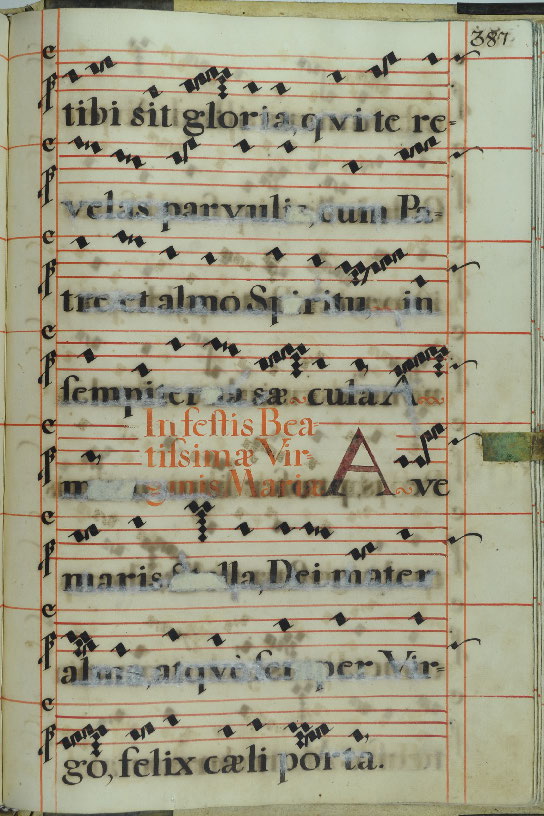 387
tibi sit gloria, qui te re-
velas parvulis, cum Pa-
tre, et almo Spiritu, in
sempiterna sæcula. A
In festis Bea-
tissimæ Vir-
ginis Mariæ
men. Ave
maris Stella, Dei mater
alma, atque semper Vir-
go, felix cæli porta.